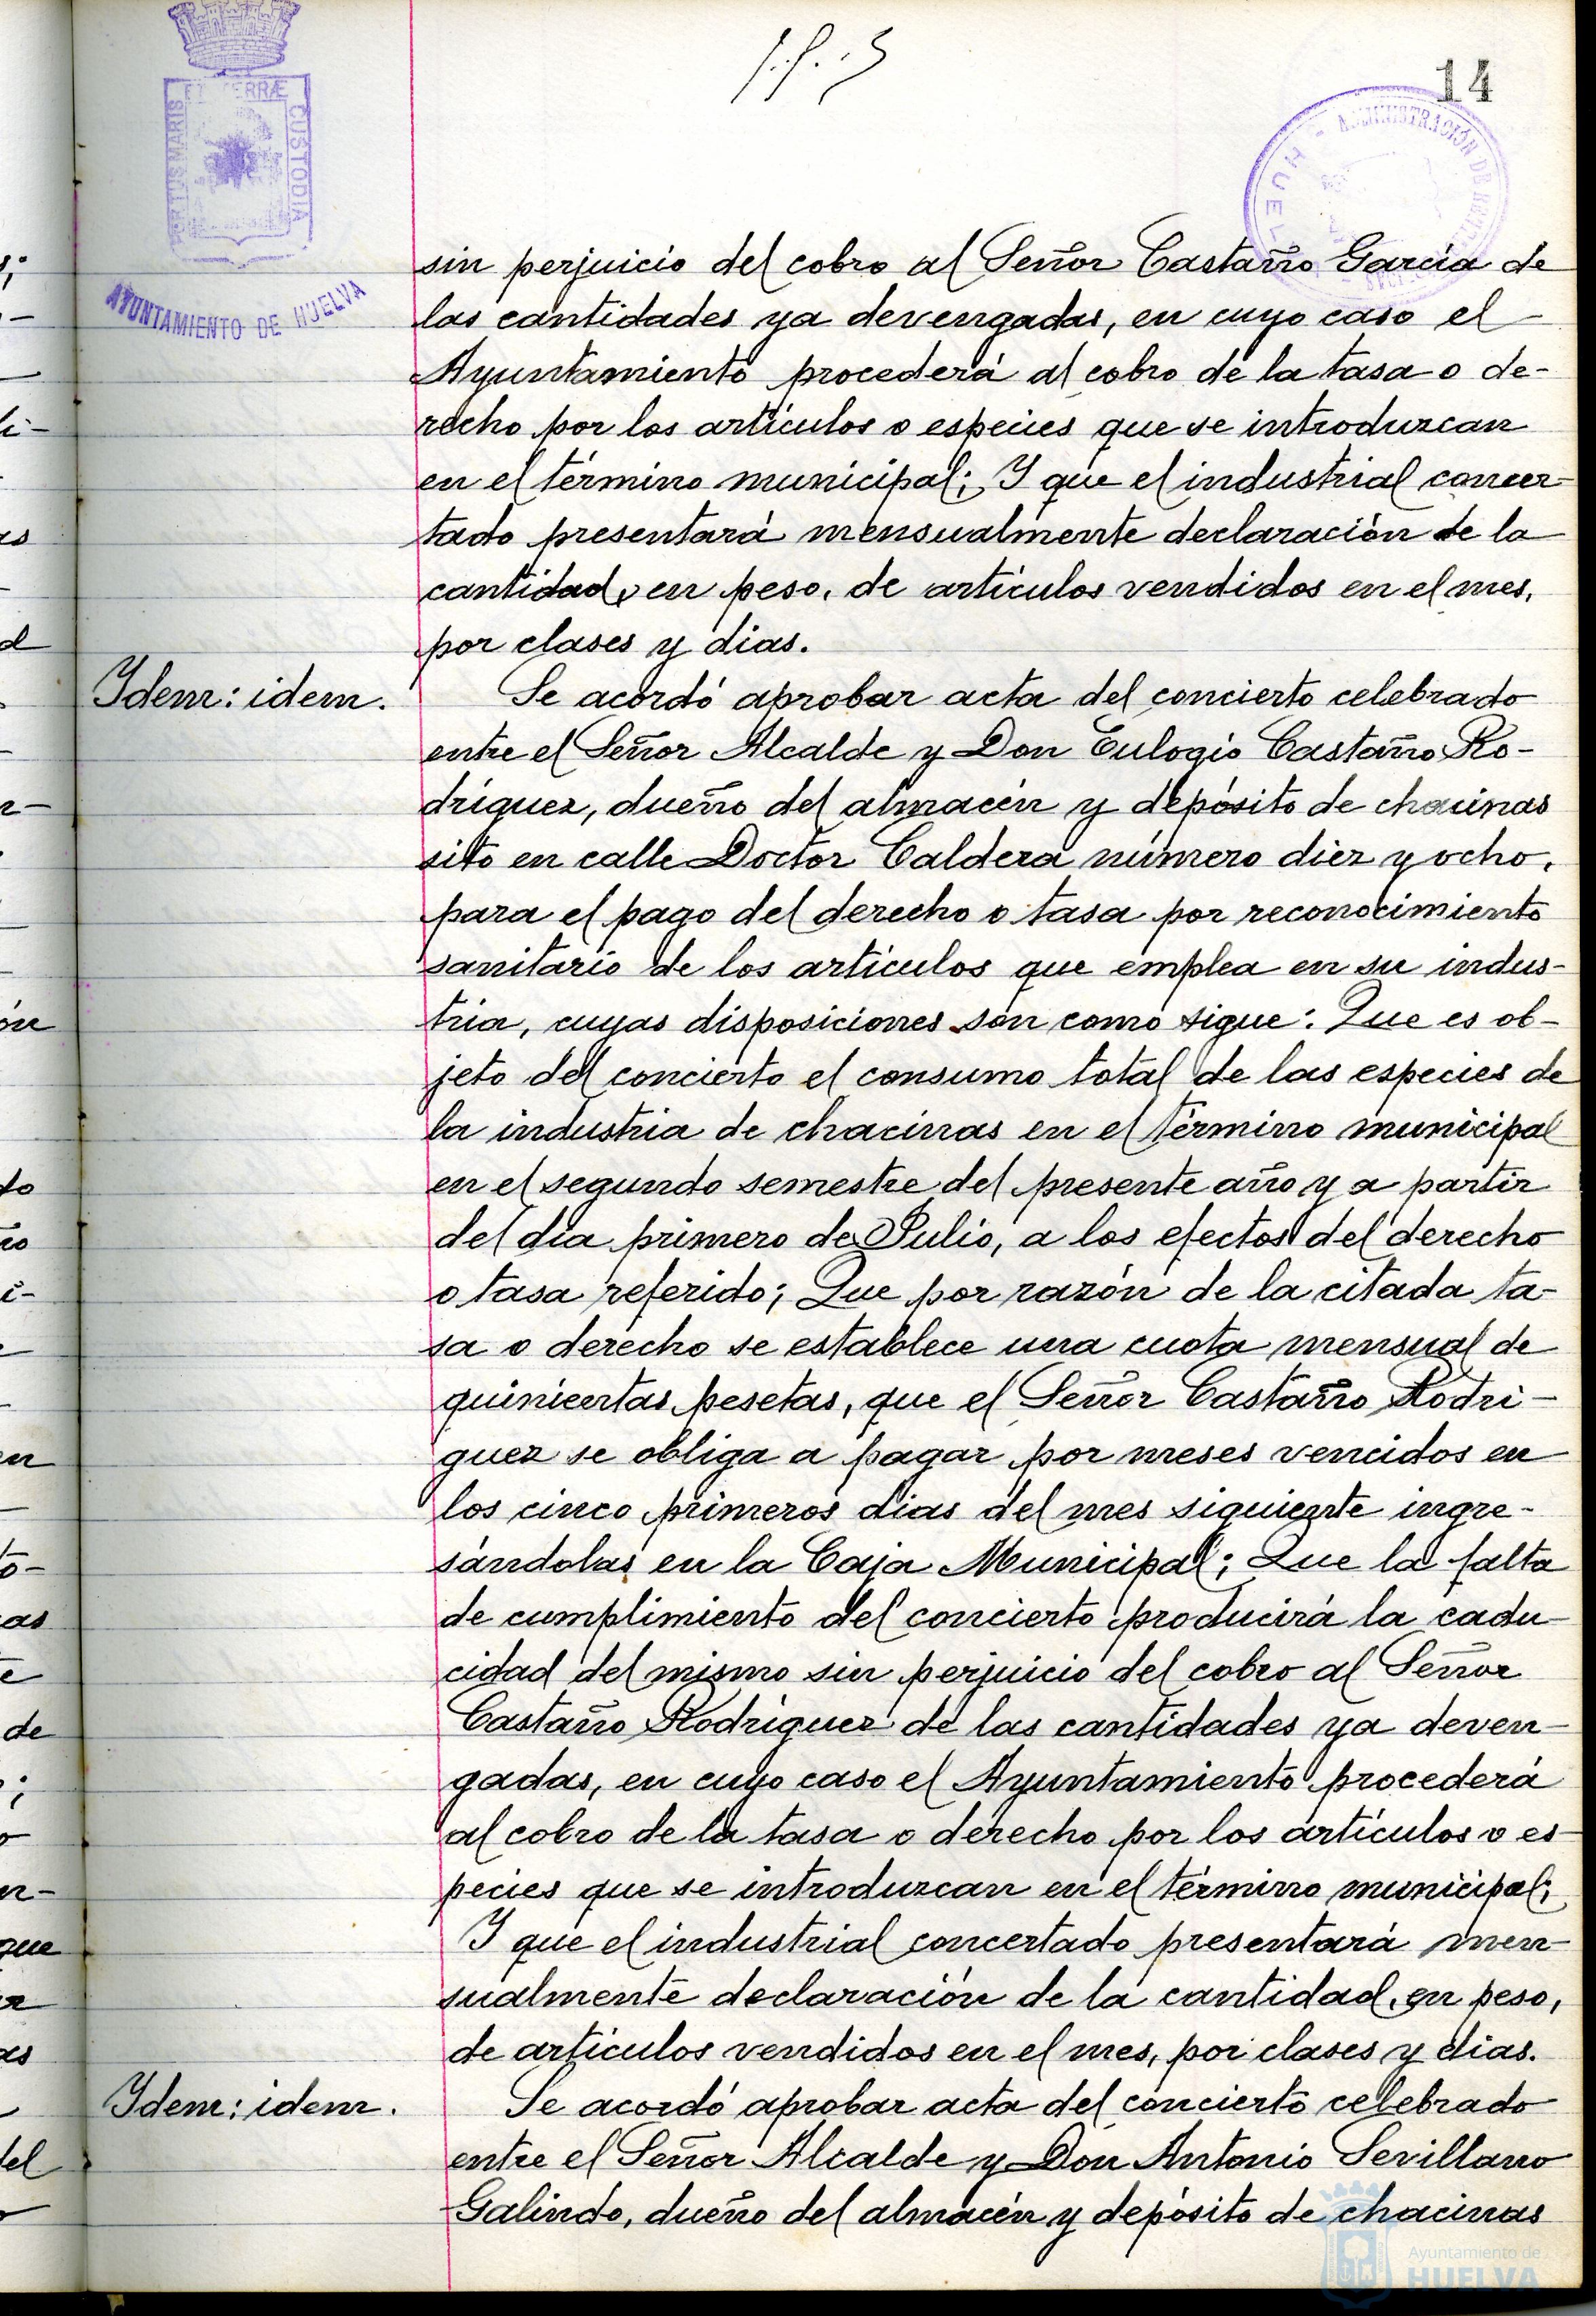 14
PORTUS MARIS
ET TERRÆ
CUSTODIA
AYUNTAMIENTO DE HUELVA
sin perjuicio del cobro al Señor Castaño García de
las cantidades ya devengadas, en cuyo caso el
Ayuntamiento procederá al cobro de la tasa o de-
recho por los artículos o especies que se introduzcan
en el término municipal; Y que el industrial concer-
tado presentará mensualmente declaración de la
cantidad, en peso, de artículos vendidos en el mes,
por clases y dias.
Idem: idem.
Se acordó aprobar acta del concierto celebrado
entre el Señor Alcalde y Don Eulogio Castaño Ro-
dríguez, dueño del almacén y depósito de chacinas
sito en calle Doctor Caldera número diez y ocho,
para el pago del derecho o tasa por reconocimiento
sanitario de los artículos que emplea en su indus-
tria, cuyas disposiciones son como sigue: Que es ob-
jeto del concierto el consumo total de las especies de
la industria de chacinas en el término municipal
en el segundo semestre del presente año y a partir
del día primero de Julio, a los efectos del derecho
o tasa referido; Que por razón de la citada ta-
sa o derecho se establece una cuota mensual de
quinientas pesetas, que el Señor Castaño Rodrí-
guez se obliga a pagar por meses vencidos en
los cinco primeros dias del mes siguiente ingre-
sándolas en la Caja Municipal; Que la falta
de cumplimiento del concierto producirá la cadu-
cidad del mismo sin perjuicio del cobro al Señor
Castaño Rodríguez de las cantidades ya deven-
gadas, en cuyo caso el Ayuntamiento procederá
al cobro de la tasa o derecho por los artículos o es-
pecies que se introduzcan en el término municipal;
Y que el industrial concertado presentará men-
sualmente declaración de la cantidad, en peso,
de artículos vendidos en el mes, por clases y dias.
Idem: idem.
Se acordó aprobar acta del concierto celebrado
entre el Señor Alcalde y Don Antonio Sevillano
Galindo, dueño del almacén y depósito de chacinas
Ayuntamiento de
HUELVA